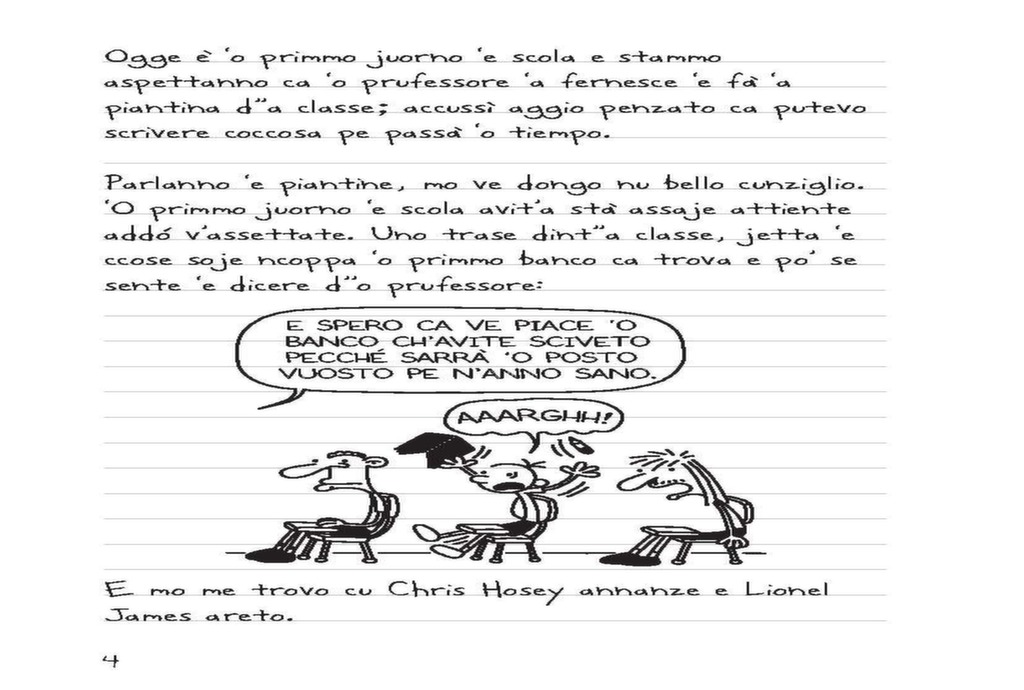 Ogge è 'o primmo juorno 'e scola e stammo
aspettanno ca 'o prufessore 'a fernesce 'e fà 'a
piantina d''a classe; accussì aggio penzato ca putevo
scrivere coccosa pe passà 'o tiempo.
Parlanno 'e piantine, mo ve dongo nu bello cunziglio.
'O primmo juorno 'e scola avit'a stà assaje attiente
addó v'assettate. Uno trase dint''a classe, jetta 'e
ccose soje ncoppa 'o primmo banco ca trova e po' se
sente 'e dicere d''o prufessore:
E SPERO CA VE PIACE 'O
BANCO CH'AVITE SCIVETO
PECCHÉ SARRÀ 'O POSTO
VUOSTO PE N'ANNO SANO.
AAARGHH!
E mo me trovo cu Chris Hosey annanze e Lionel
James areto.
4